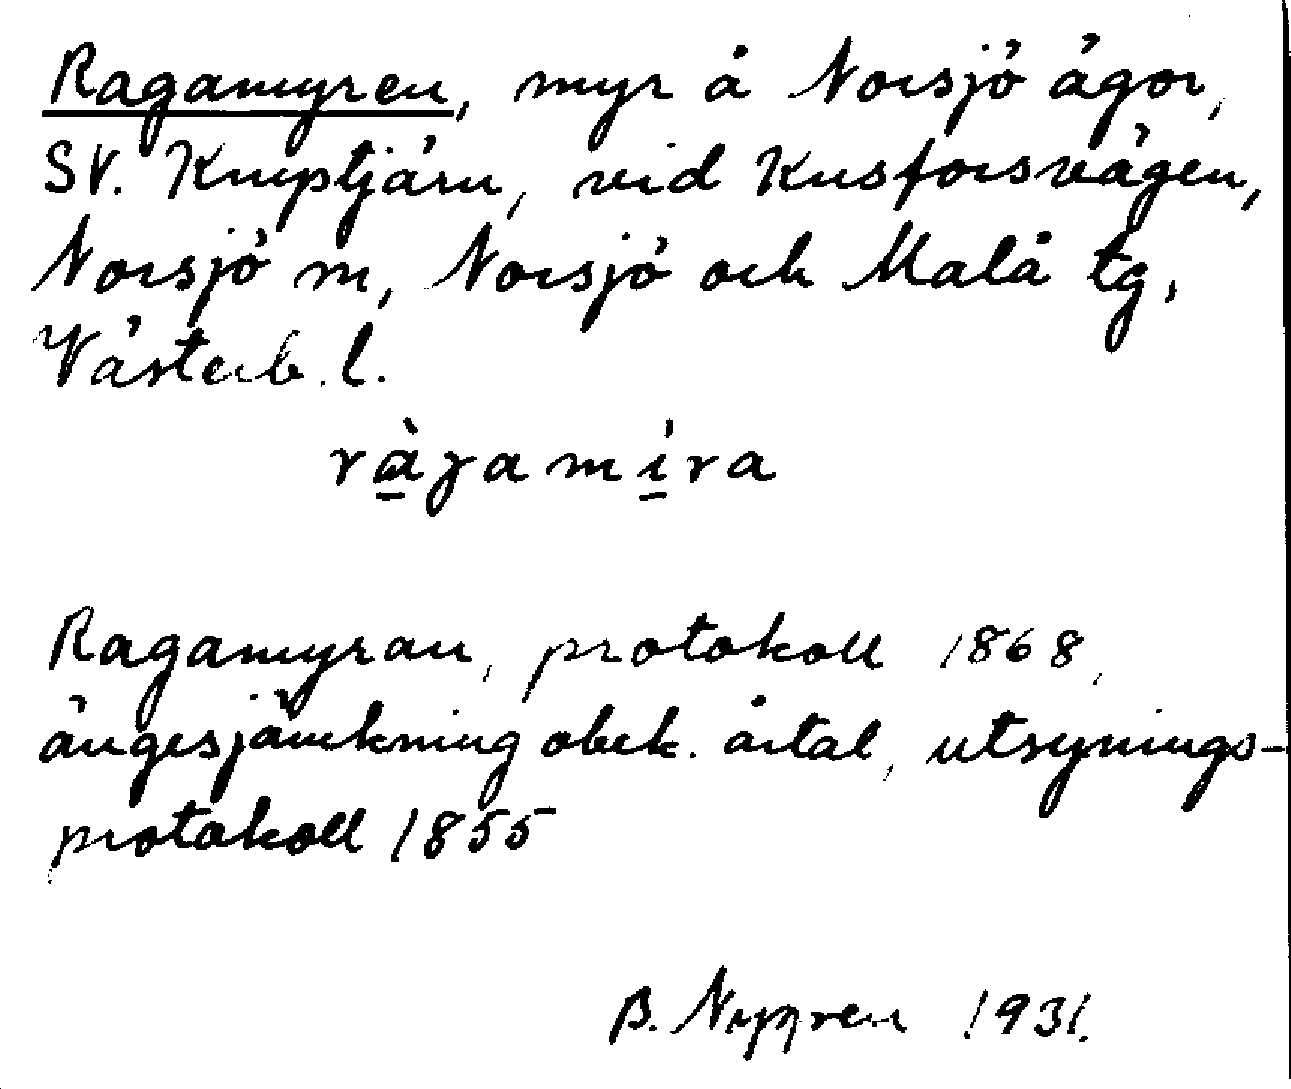 Ragamyren, myr å Norsjö ägor,
SV. Knuptjärn, vid Kusforsvägen,
Norsjö m, Norsjö och Malå tg,
Västerb. l.
ràgamíra
Ragamyran, protokoll 1868,
ängesjämkning obek. årtal, utsynings-
protokoll 1855
B. Nygren 1931.